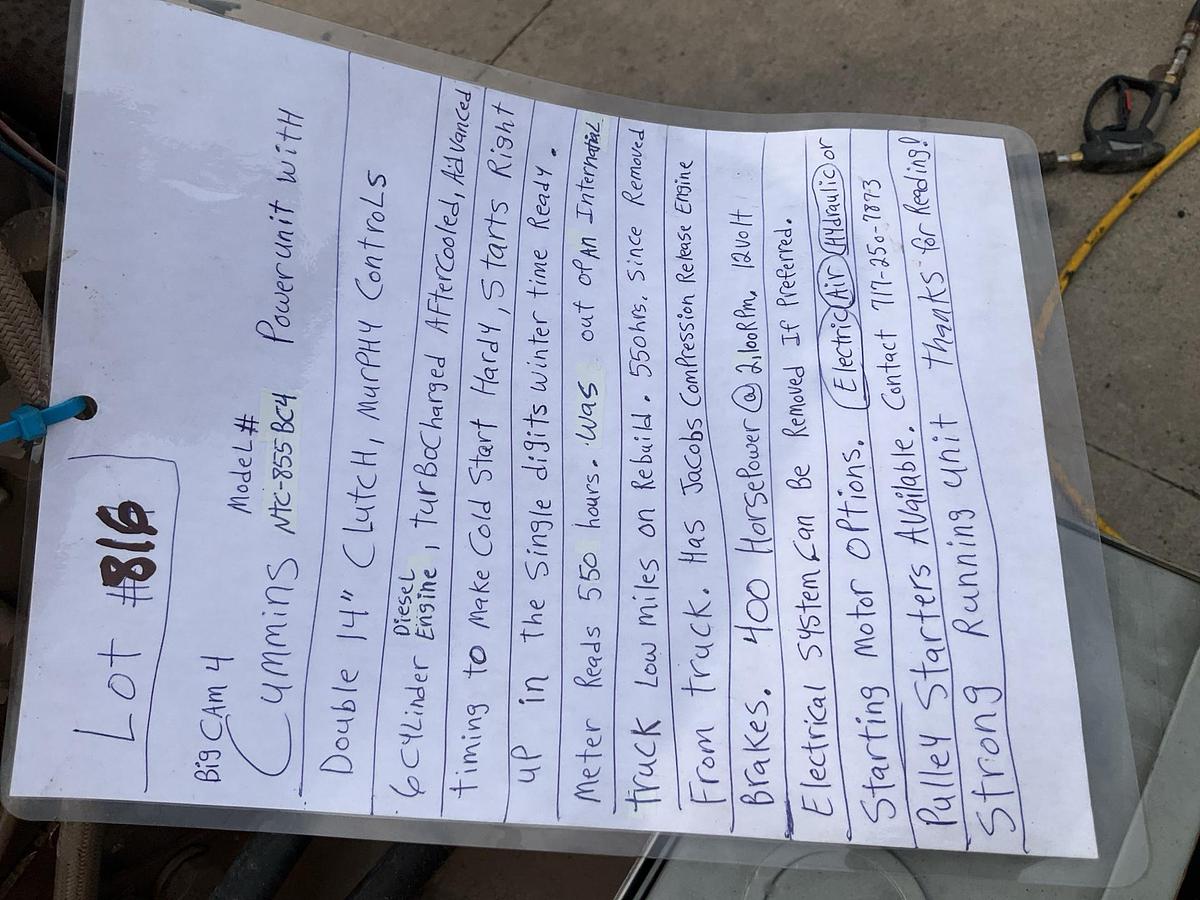 Lot #816
Big CAm 4
Model #
Cummins NTC-855BC4 Powerunit With
Double 14" Clutch, Murphy Controls
6 Cylinder Diesel Engine, turbocharged Aftercooled, Advanced
timing to Make Cold Start Hard, Starts Right
up in the Single digits Winter time Ready.
Meter Reads 550 hours. Was out of An International
truck Low miles on Rebuild. 550hrs. Since Removed
From truck. Has Jacobs Compression Release Engine
Brakes. 400 Horsepower @ 2,100RPm. 12Volt
Electrical System Can Be Removed If Preferred.
Starting Motor Options. Electric Air Hydraulic or
Pulley Starters Available. Contact 717-250-7873
Strong Running unit Thanks for Reading!